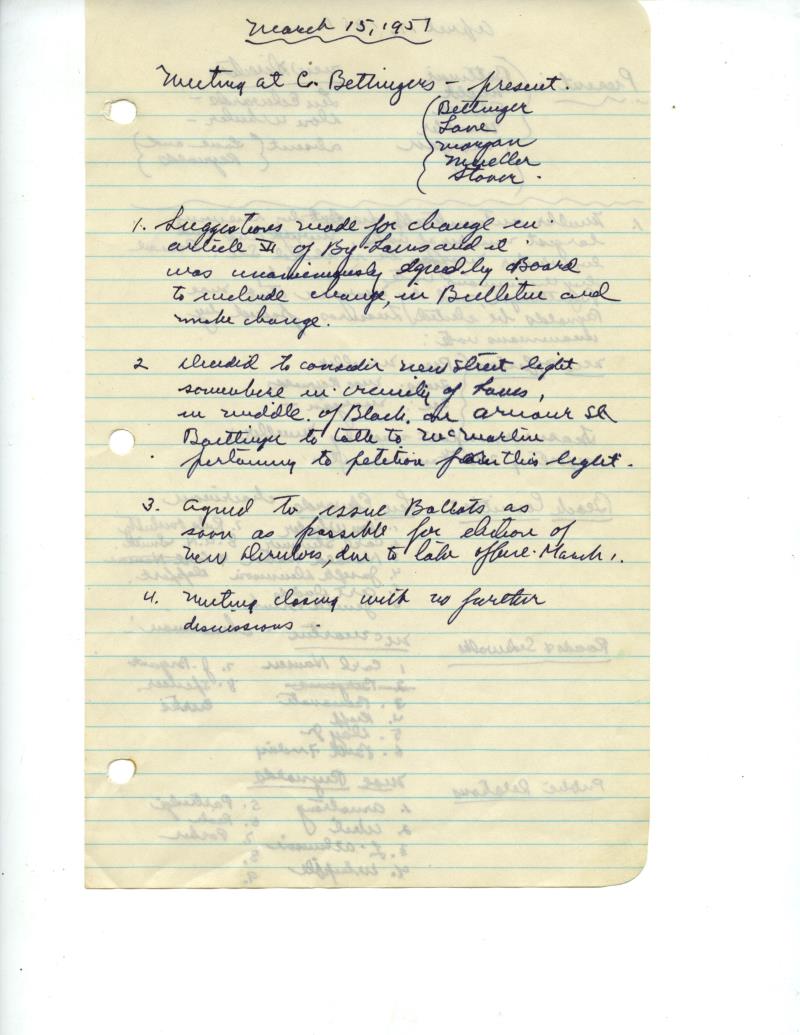 March 15, 1951
Meeting at C. Bettingers - present.
Bettinger
Lane
Morgan
Mueller
Stover.
1. Suggestions made for change in
article VI of By-Laws and it
was unanimously agreed by Board
to include change, in Bulletin and
make change.
2 Decided to consider new street light
somewhere in vicinity of Lanes,
in middle of Block. on Armour St
Baettinger to talk to McMartin
pertaining to petition for this light.
3. Agreed to issue Ballots as
soon as possible for election of
new Directors, due to late of
March.
4. Meeting closing with no further
discussions.